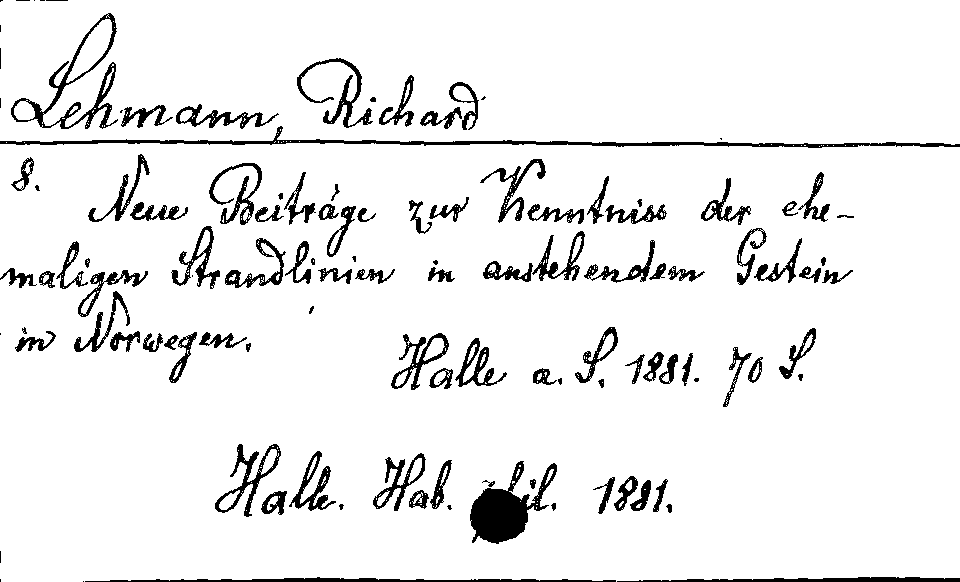 Lehmann, Richard
8.
Neue Beiträge zur Kenntniss der ehe-
maligen Strandlinien in anstehendem Gestein
in Norwegen.
Halle a. S. 1881. 70 S.
Halle. Hab. phil. 1881.